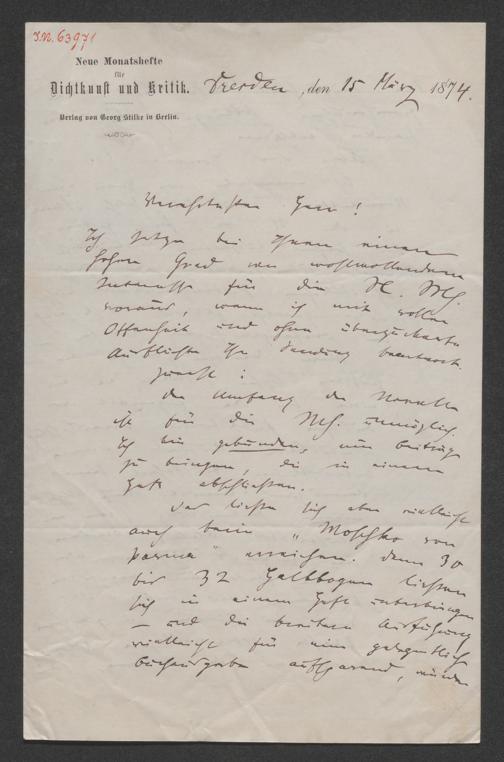 I.N. 63971
Neue Monatshefte
für
Dichtkunst und Kritik.
Verlag von Georg Stilke in Berlin.
Dresden, den 15 März 1874.
Verehrtester Herr!
Ich setze bei Ihnen einen
hohen Grad von wohlwollendem
Interesse für die N. Mh.
voraus, wenn ich mit voller
Offenheit und ohne überzuckerte
Ausflüchte Ihre Sendung beantworte.
Zuerst:
Der Umfang der Novelle
ist für die Mh. unmöglich.
Ich bin gebunden, nur Beiträge
zu bringen, die in einem
Heft abschließen.
Das ließe sich aber vielleicht
auch beim „Moschko von
Parma" erreichen. Denn 30
bis 32 Halbbogen ließen
sich in einem Heft unterbringen
— und die breitere Ausführung
vielleicht für eine gelegentliche
Buchausgabe aufsparend, würden